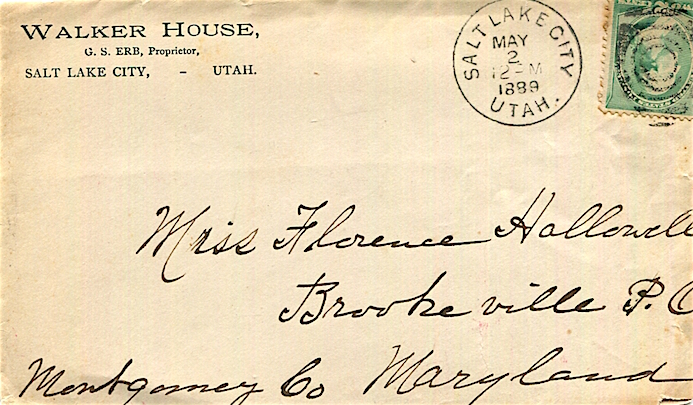 WALKER HOUSE,
G. S. ERB, Proprietor,
SALT LAKE CITY, - UTAH.
SALT LAKE CITY
MAY
2
12-M
1889
UTAH.
Miss Florence Hallowell
Brookeville P. O
Montgomery Co Maryland